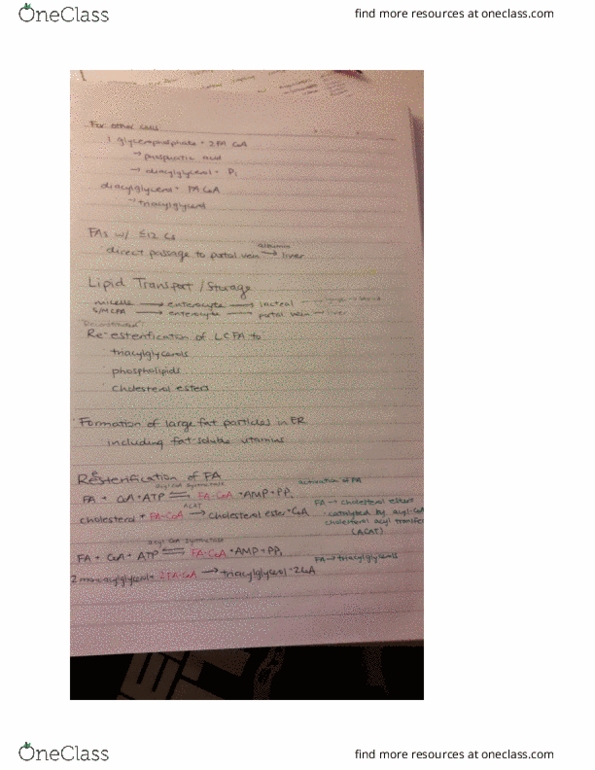 OneClass
find more resources at oneclass.com
For other cells
1 glycerophosphate + 2FA CoA
→ phosphatidic acid
→ diacylglycerol + Pi
diacylglycerol + FA CoA
→ triacylglycerol
FAs w/ ≤12 Cs
direct passage to portal vein albumin → liver
Lipid Transport / Storage
micelle → enterocyte → lacteal →
S/MCFA → enterocyte → portal vein → liver
Re-esterification of LCFA to
triacylglycerols
phospholipids
cholesterol esters
Formation of large fat particles in ER
including fat soluble vitamins
Resterification of FA
acyl CoA synthetase
activation of FA
FA + CoA + ATP ⇌ FA-CoA + AMP + PPi
FA → cholesterol esters
ACAT
catalyzed by acyl-CoA
cholesterol + FA-CoA → cholesterol ester + CoA
cholesterol acyl transfer
(ACAT)
acyl CoA synthetase
FA + CoA + ATP ⇌ FA-CoA + AMP + PPi
FA → triacylglycerols
2 monoacylglycerol + 2FA-CoA → triacylglycerol + 2CoA
OneClass
find more resources at oneclass.com